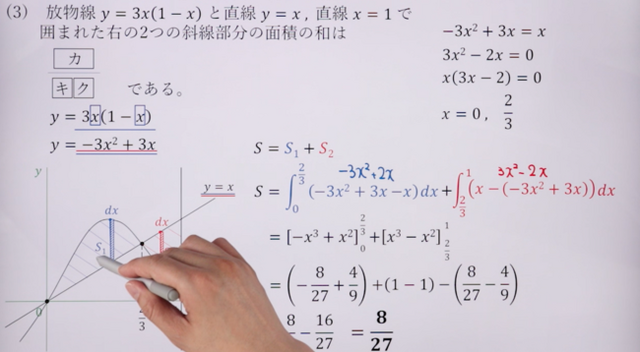 (3) 放物線 y = 3x(1 − x) と直線 y = x , 直線 x = 1 で
囲まれた右の2つの斜線部分の面積の和は
カ
キク である。
y = 3x(1 − x)
y = −3x² + 3x
−3x² + 3x = x
3x² − 2x = 0
x(3x − 2) = 0
x = 0 , 2/3
S = S₁ + S₂
−3x²+2x 3x²−2x
S = ∫₀^{2/3} (−3x² + 3x − x) dx + ∫_{2/3}^1 (x − (−3x² + 3x)) dx
= [−x³ + x²]₀^{2/3} + [x³ − x²]_{2/3}^1
= (−8/27 + 4/9) + (1 − 1) − (8/27 − 4/9)
8 − 16/27 = 8/27
y
y = x
dx
dx
S₁
0
3